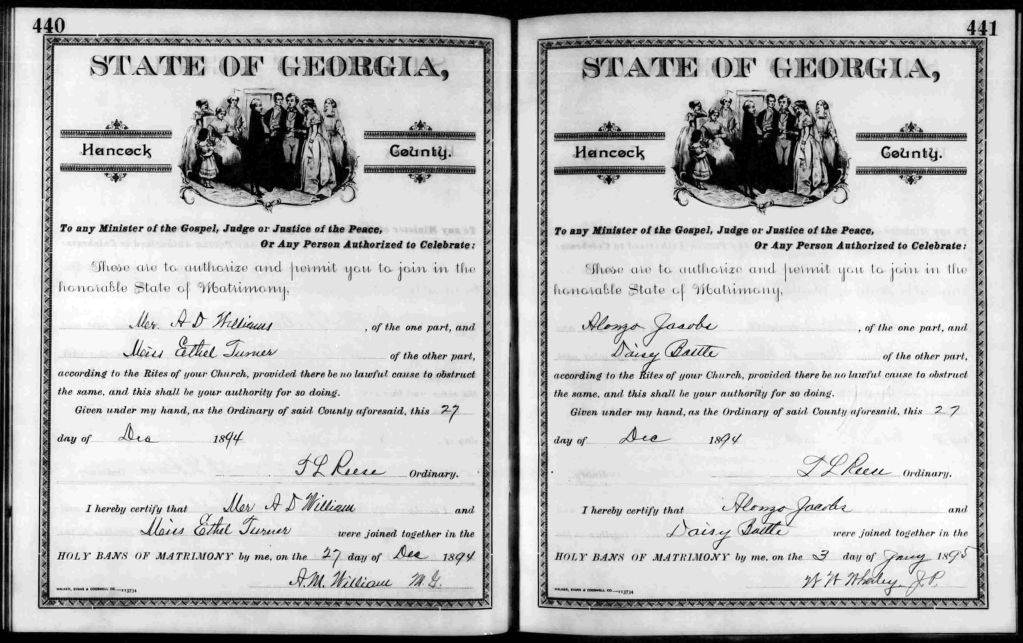 440
STATE OF GEORGIA,
Hancock County.
To any Minister of the Gospel, Judge or Justice of the Peace,
Or Any Person Authorized to Celebrate:
These are to authorize and permit you to join in the
honorable State of Matrimony,
Mr. A D Williams , of the one part, and
Miss Ethel Turner of the other part,
according to the Rites of your Church, provided there be no lawful cause to obstruct
the same, and this shall be your authority for so doing.
Given under my hand, as the Ordinary of said County aforesaid, this 27
day of Dec 1894
T L Reese Ordinary.
I hereby certify that Mr A D William and
Miss Ethel Turner were joined together in the
HOLY BANS OF MATRIMONY by me, on the 27 day of Dec 1894
A.M. William M G.
WALKER, EVANS & COGSWELL CO.—113734
441
STATE OF GEORGIA,
Hancock County.
To any Minister of the Gospel, Judge or Justice of the Peace,
Or Any Person Authorized to Celebrate:
These are to authorize and permit you to join in the
honorable State of Matrimony,
Alonzo Jacobs , of the one part, and
Daisy Battle of the other part,
according to the Rites of your Church, provided there be no lawful cause to obstruct
the same, and this shall be your authority for so doing.
Given under my hand, as the Ordinary of said County aforesaid, this 27
day of Dec 1894
T L Reese Ordinary.
I hereby certify that Alonzo Jacobs and
Daisy Battle were joined together in the
HOLY BANS OF MATRIMONY by me, on the 3 day of Jany 1895
W W J.P.
WALKER, EVANS & COGSWELL CO.—113734